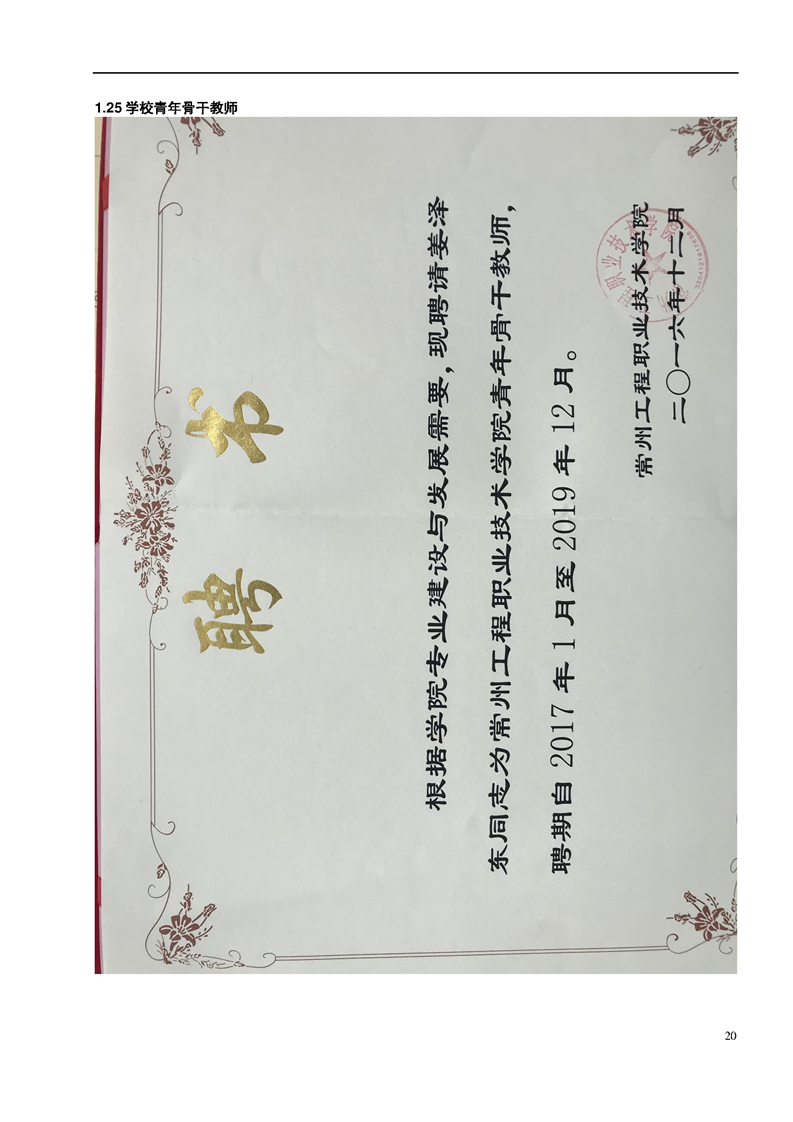 1.25 学校青年骨干教师
聘书
根据学院专业建设与发展需要，现聘请姜泽
东同志为常州工程职业技术学院青年骨干教师，
聘期自 2017 年 1 月至 2019 年 12 月。
常州工程职业技术学院
二〇一六年十二月
20